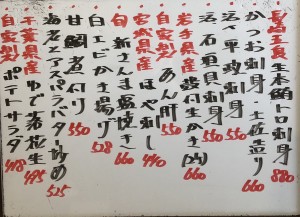 長崎県産生本鮪トロ刺身 880
かつお刺身・土佐造り 660
活〆平政刺身 550
活石垣貝刺身 550
岩手県産殻付生かき(2ヶ) 660
自家製あん肝 550
宮城県産ほや刺し 440
旬新さんま塩焼き 660
白エビかき揚げ 528
甘鯛煮付け 550
海老とアスパラバター炒め 525
千葉県産ゆで落花生 495
自家製ポテトサラダ 418